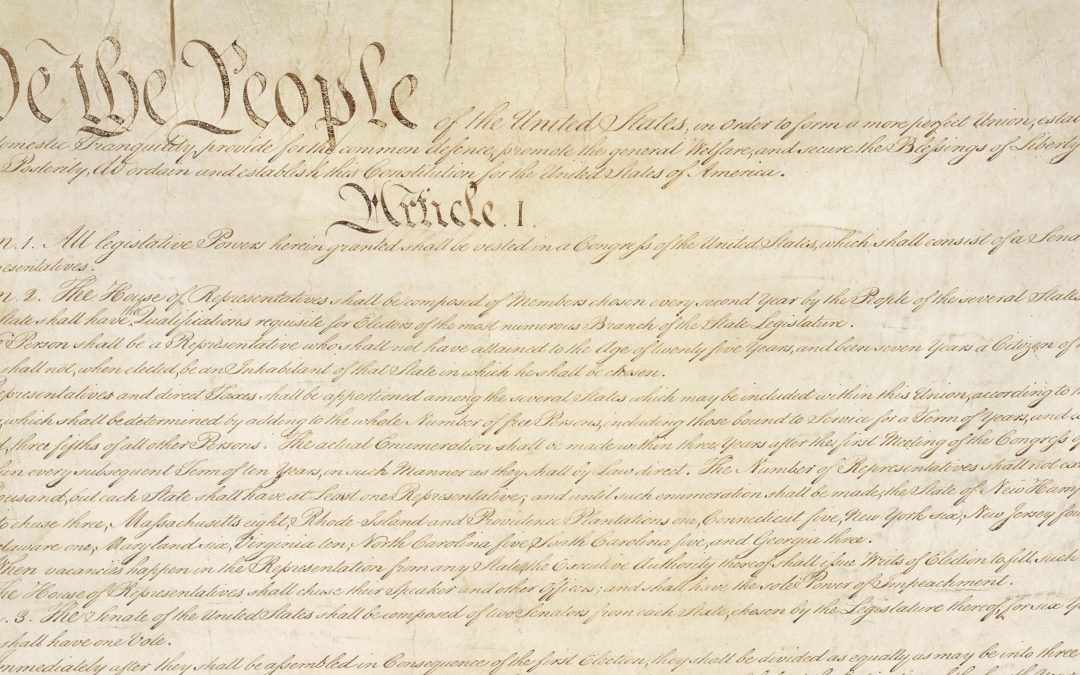 We the People of the United States, in Order to form a more perfect Union, esta
omestic Tranquility, provide for the common defence, promote the general Welfare, and secure the Blessings of Liberty
Posterity, do ordain and establish this Constitution for the United States of America.
Article. I.
n. 1. All legislative Powers herein granted shall be vested in a Congress of the United States, which shall consist of a Sena
resentatives.
n. 2. The House of Representatives shall be composed of Members chosen every second Year by the People of the several States
State shall have the Qualifications requisite for Electors of the most numerous Branch of the State Legislature.
o Person shall be a Representative who shall not have attained to the Age of twenty five Years, and been seven Years a Citizen of
shall not, when elected, be an Inhabitant of that State in which he shall be chosen.
epresentatives and direct Taxes shall be apportioned among the several States which may be included within this Union, according to
, which shall be determined by adding to the whole Number of free Persons, including those bound to Service for a Term of Years, and
d, three fifths of all other Persons. The actual Enumeration shall be made within three Years after the first Meeting of the Congress
hin every subsequent Term of ten Years, in such Manner as they shall by Law direct. The Number of Representatives shall not
ousand, but each State shall have at Least one Representative; and until such enumeration shall be made, the State of New Hamp
to chuse three, Massachusetts eight, Rhode-Island and Providence Plantations one, Connecticut five, New York six, New Jersey fou
elaware one, Maryland six, Virginia ten, North Carolina five, South Carolina five, and Georgia three.
When vacancies happen in the Representation from any State, the Executive Authority thereof shall issue Writs of Election to fill such
The House of Representatives shall chuse their Speaker and other Officers; and shall have the sole Power of Impeachment.
n. 3. The Senate of the United States shall be composed of two Senators from each State, chosen by the Legislature thereof, for six
shall have one Vote.
mmediately after they shall be assembled in Consequence of the first Election, they shall be divided as equally as may be into three